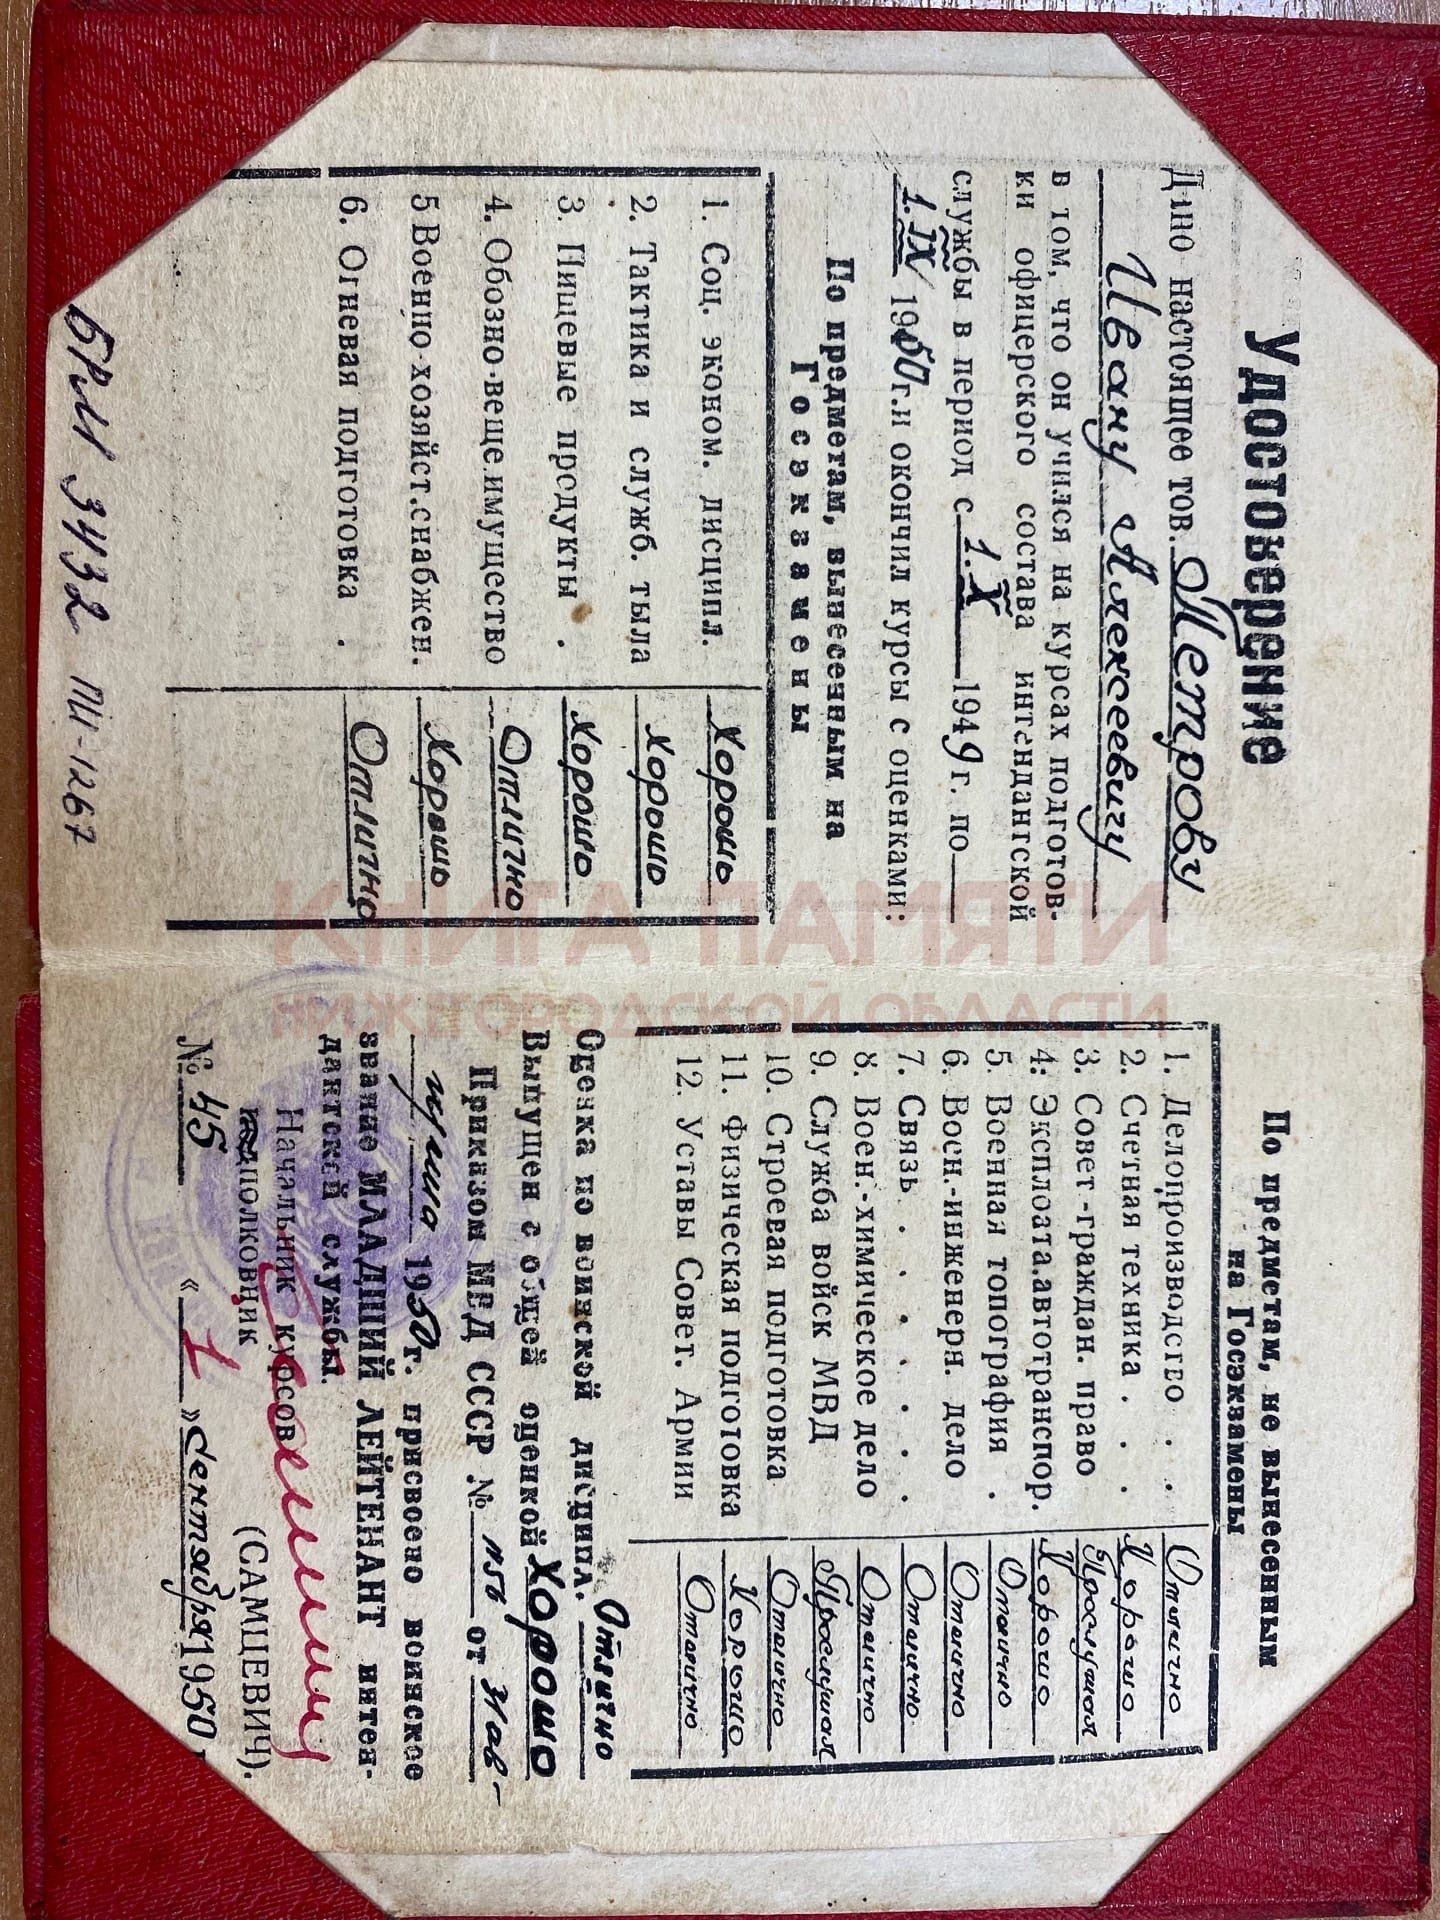 Удостоверение
Дано настоящее тов. Петрову
Ивану Алексеевичу
в том, что он учился на курсах подготов-
ки офицерского состава интендантской
службы в период с 1.X 1949 г. по
1.IX 1950 г. и окончил курсы с оценками:
По предметам, вынесенным на
Госэкзамены
1. Соц. эконом. дисципл. Хорошо
2. Тактика и служб. тыла Хорошо
3. Пищевые продукты . Хорошо
4. Обозно-веще.имущество Отлично
5 Военно-хозяйст.снабжен. Хорошо
6. Огневая подготовка . Отлично
БРМ 3432 ПИ-1267
По предметам, не вынесенным
на Госэкзамены
1. Делопроизводство . . Отлично
2. Счетная техника . . . Хорошо
3. Совет.-граждан. право Прослушал
4. Эксплоата.автотранспор. Хорошо
5. Военная топография . Отлично
6. Воен.-инженерн. дело Отлично
7. Связь . . . . . . Отлично
8. Воен.-химическое дело Отлично
9. Служба войск МВД Прослушал
10. Строевая подготовка Отлично
11. Физическая подготовка Хорошо
12. Уставы Совет. Армии Отлично
Оценка по воинской дисципл. Отлично
Выпущен с общей оценкой Хорошо
Приказом МВД СССР № от 31 ав-
густа 1950 г. присвоено воинское
звание МЛАДШИЙ ЛЕЙТЕНАНТ интен-
дантской службы.
Начальник курсов
подполковник (САМЦЕВИЧ).
№ 45 « 1 » Сентября 1950
КНИГА ПАМЯТИ
НИЖЕГОРОДСКОЙ ОБЛАСТИ